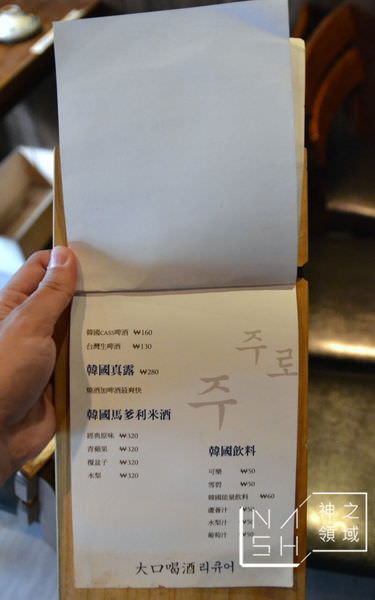 韓國CASS啤酒 ₩160
台灣生啤酒 ₩130
韓國真露 ₩280
燒酒加啤酒最爽快
韓國馬爹利米酒
經典原味 ₩320
青蘋果 ₩320
覆盆子 ₩320
水梨 ₩320
주로
주
韓國飲料
可樂 ₩50
雪碧 ₩50
韓國能量飲料 ₩60
蘆薈汁 ₩50
水梨汁 ₩50
葡萄汁 ₩50
大口喝酒 리큐어
NASH
神之領域